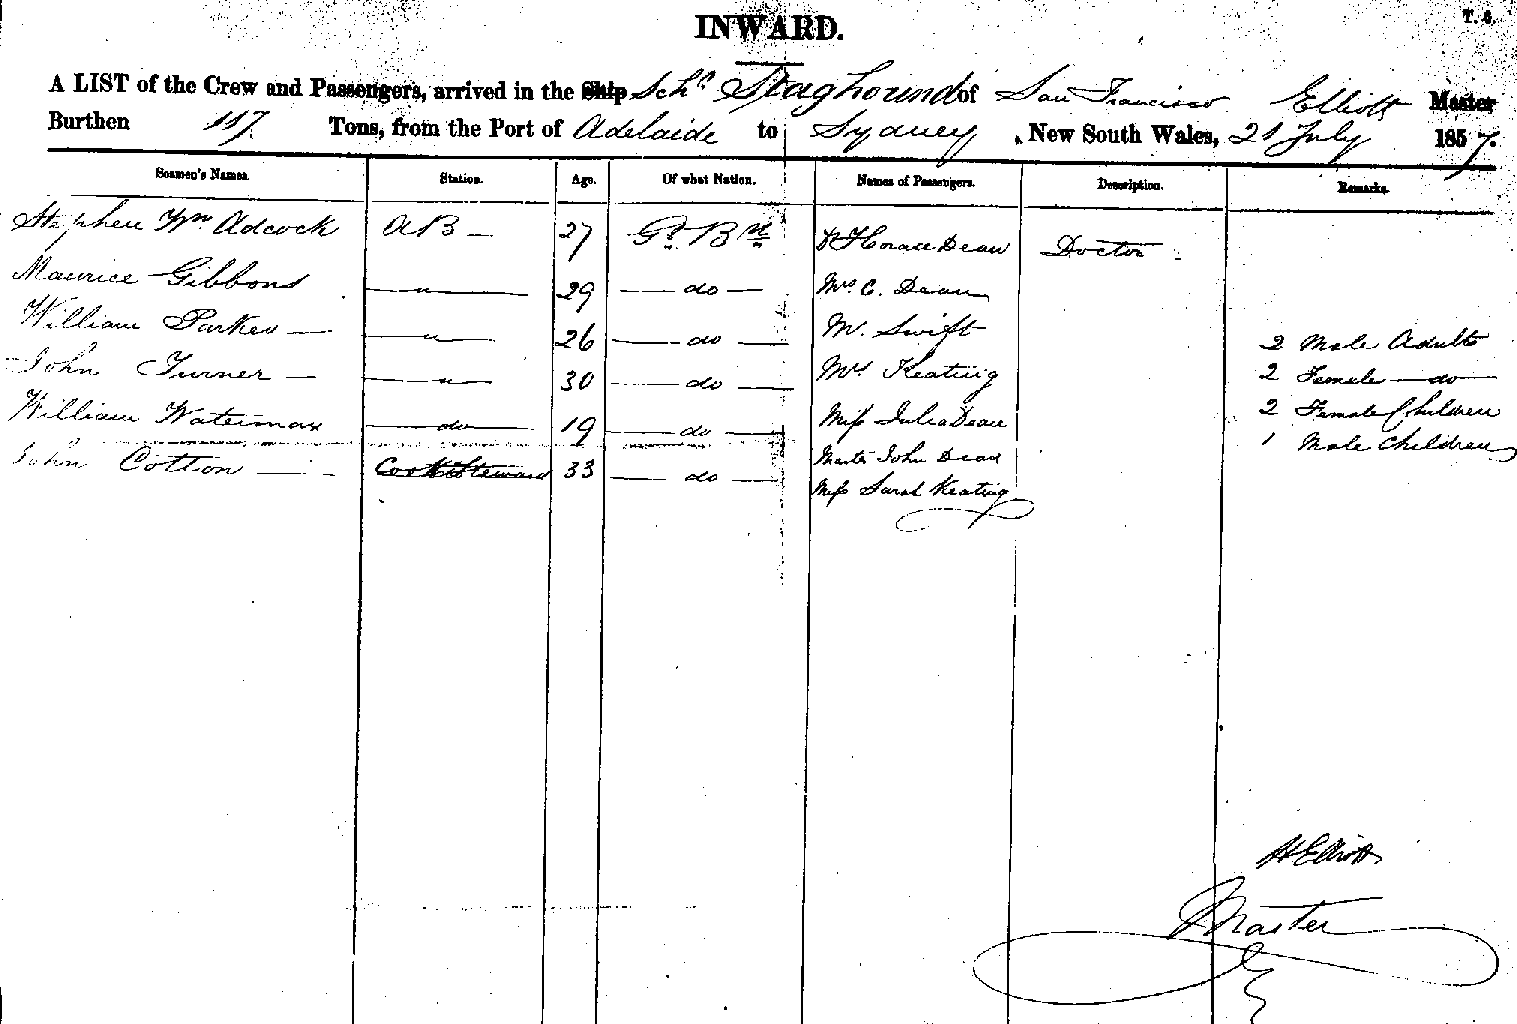 T. 6.
INWARD.
A LIST of the Crew and Passengers, arrived in the Ship Schr Staghound of San Francisco Elliott Master
Burthen 117 Tons, from the Port of Adelaide to Sydney, New South Wales, 21 July 1857.
Seamen's Names. Station. Age. Of what Nation. Names of Passengers. Description. Remarks.
Stephen Wm Adcock AB — 27 Gt. Bn Horace Dean Doctor
Maurice Gibbons — " — 29 — do — Mrs C. Dean
William Parkes — — " — 26 — do — Mr. Swift 2 Male Adults
John Turner — — " — 30 — do — Mrs Keating 2 Female — do —
William Waterman — do — 19 — do — Miss Julia Dean 2 Female Children
John Cotton — Cook & Steward 33 — do — Master John Dean 1 Male Children
Miss Sarah Keating
H Elliott
Master